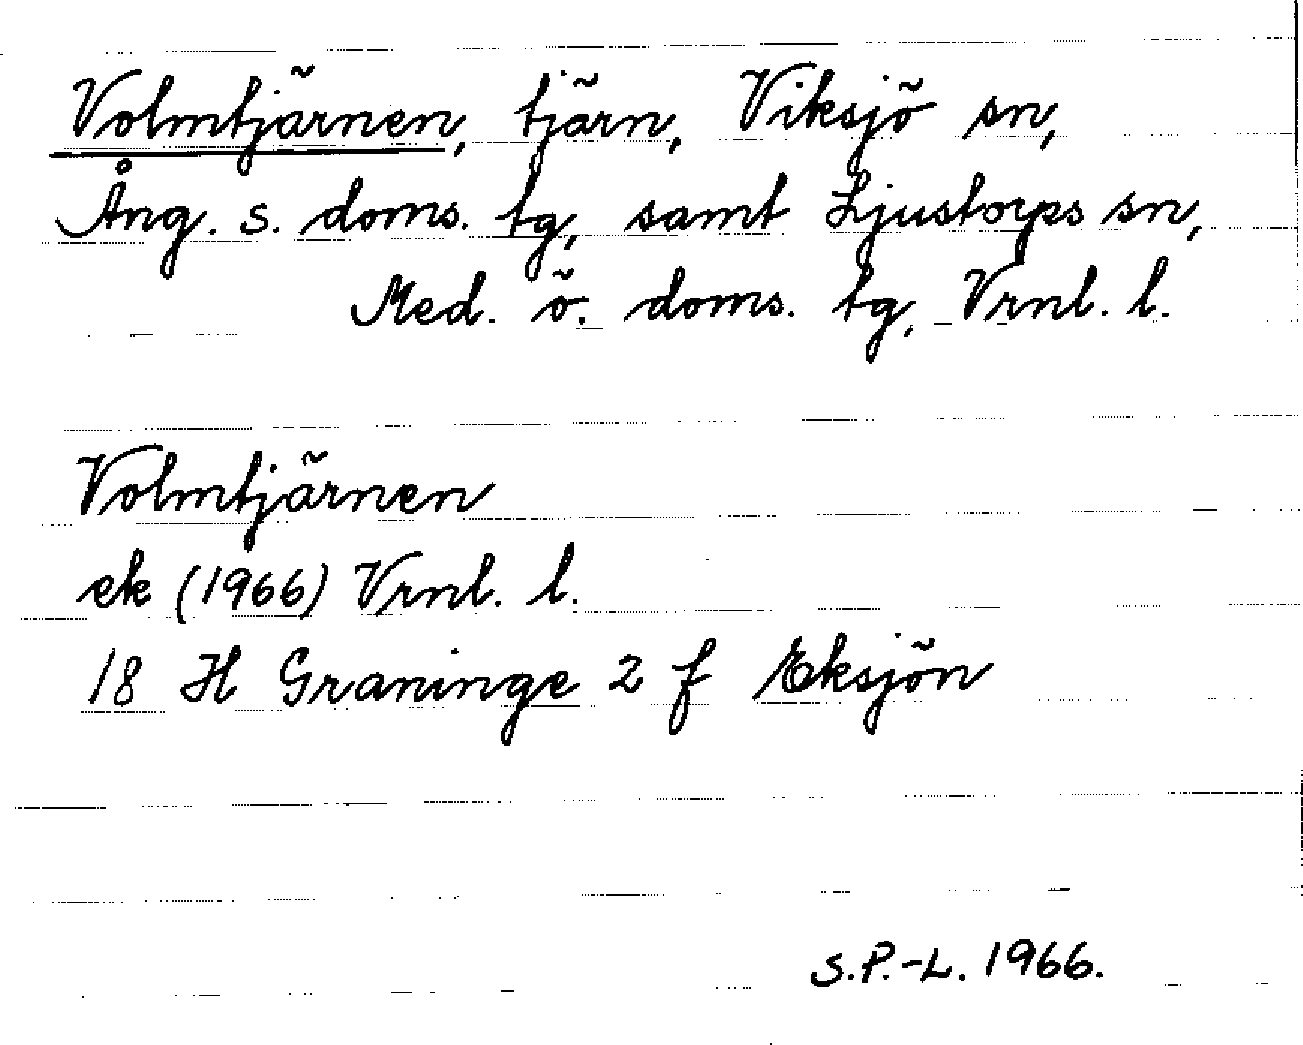 Volmtjärnen, tjärn, Viksjö sn,
Ång. s. doms. tg, samt Ljustorps sn,
Med. ö. doms. tg, Vrnl. l.
Volmtjärnen
ek (1966) Vrnl. l.
18 H Graninge 2 f Eksjön
S.P.-L. 1966.